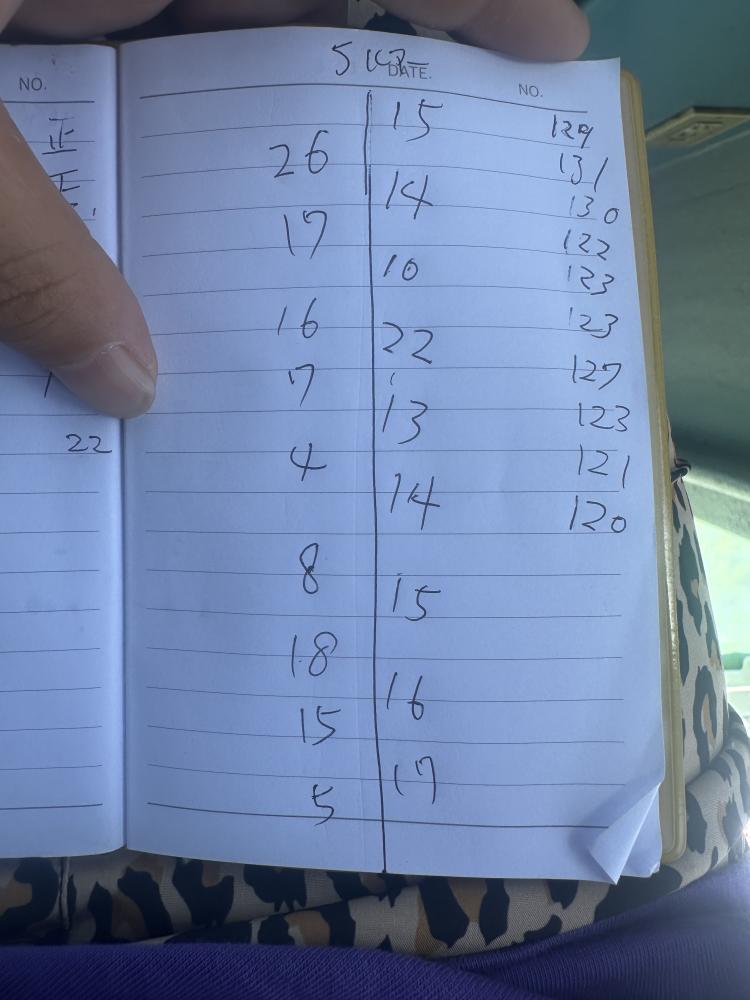 NO.
正
22
5
DATE.
NO.
15
129
26
131
14
130
17
122
10
123
16
123
22
7
127
13
123
4
121
14
120
8
15
18
16
15
17
5